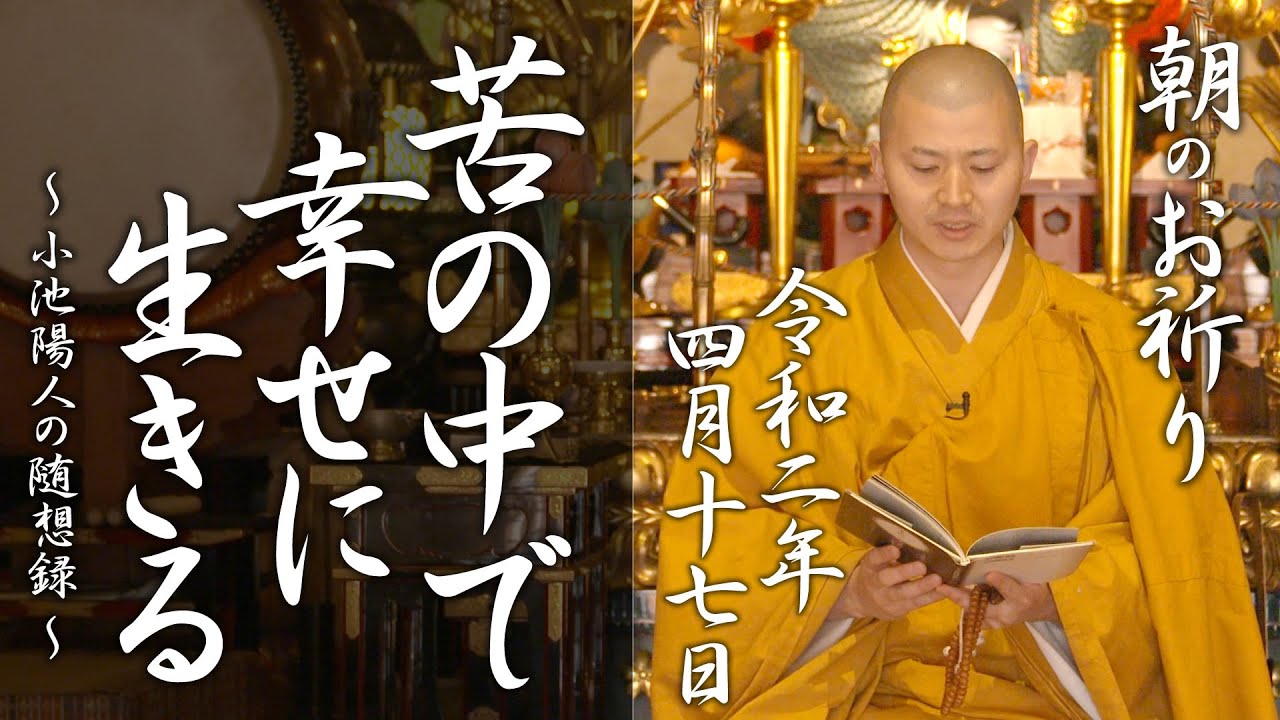 朝のお祈り
令和二年
四月十七日
苦の中で
幸せに
生きる
〜小池陽人の随想録〜